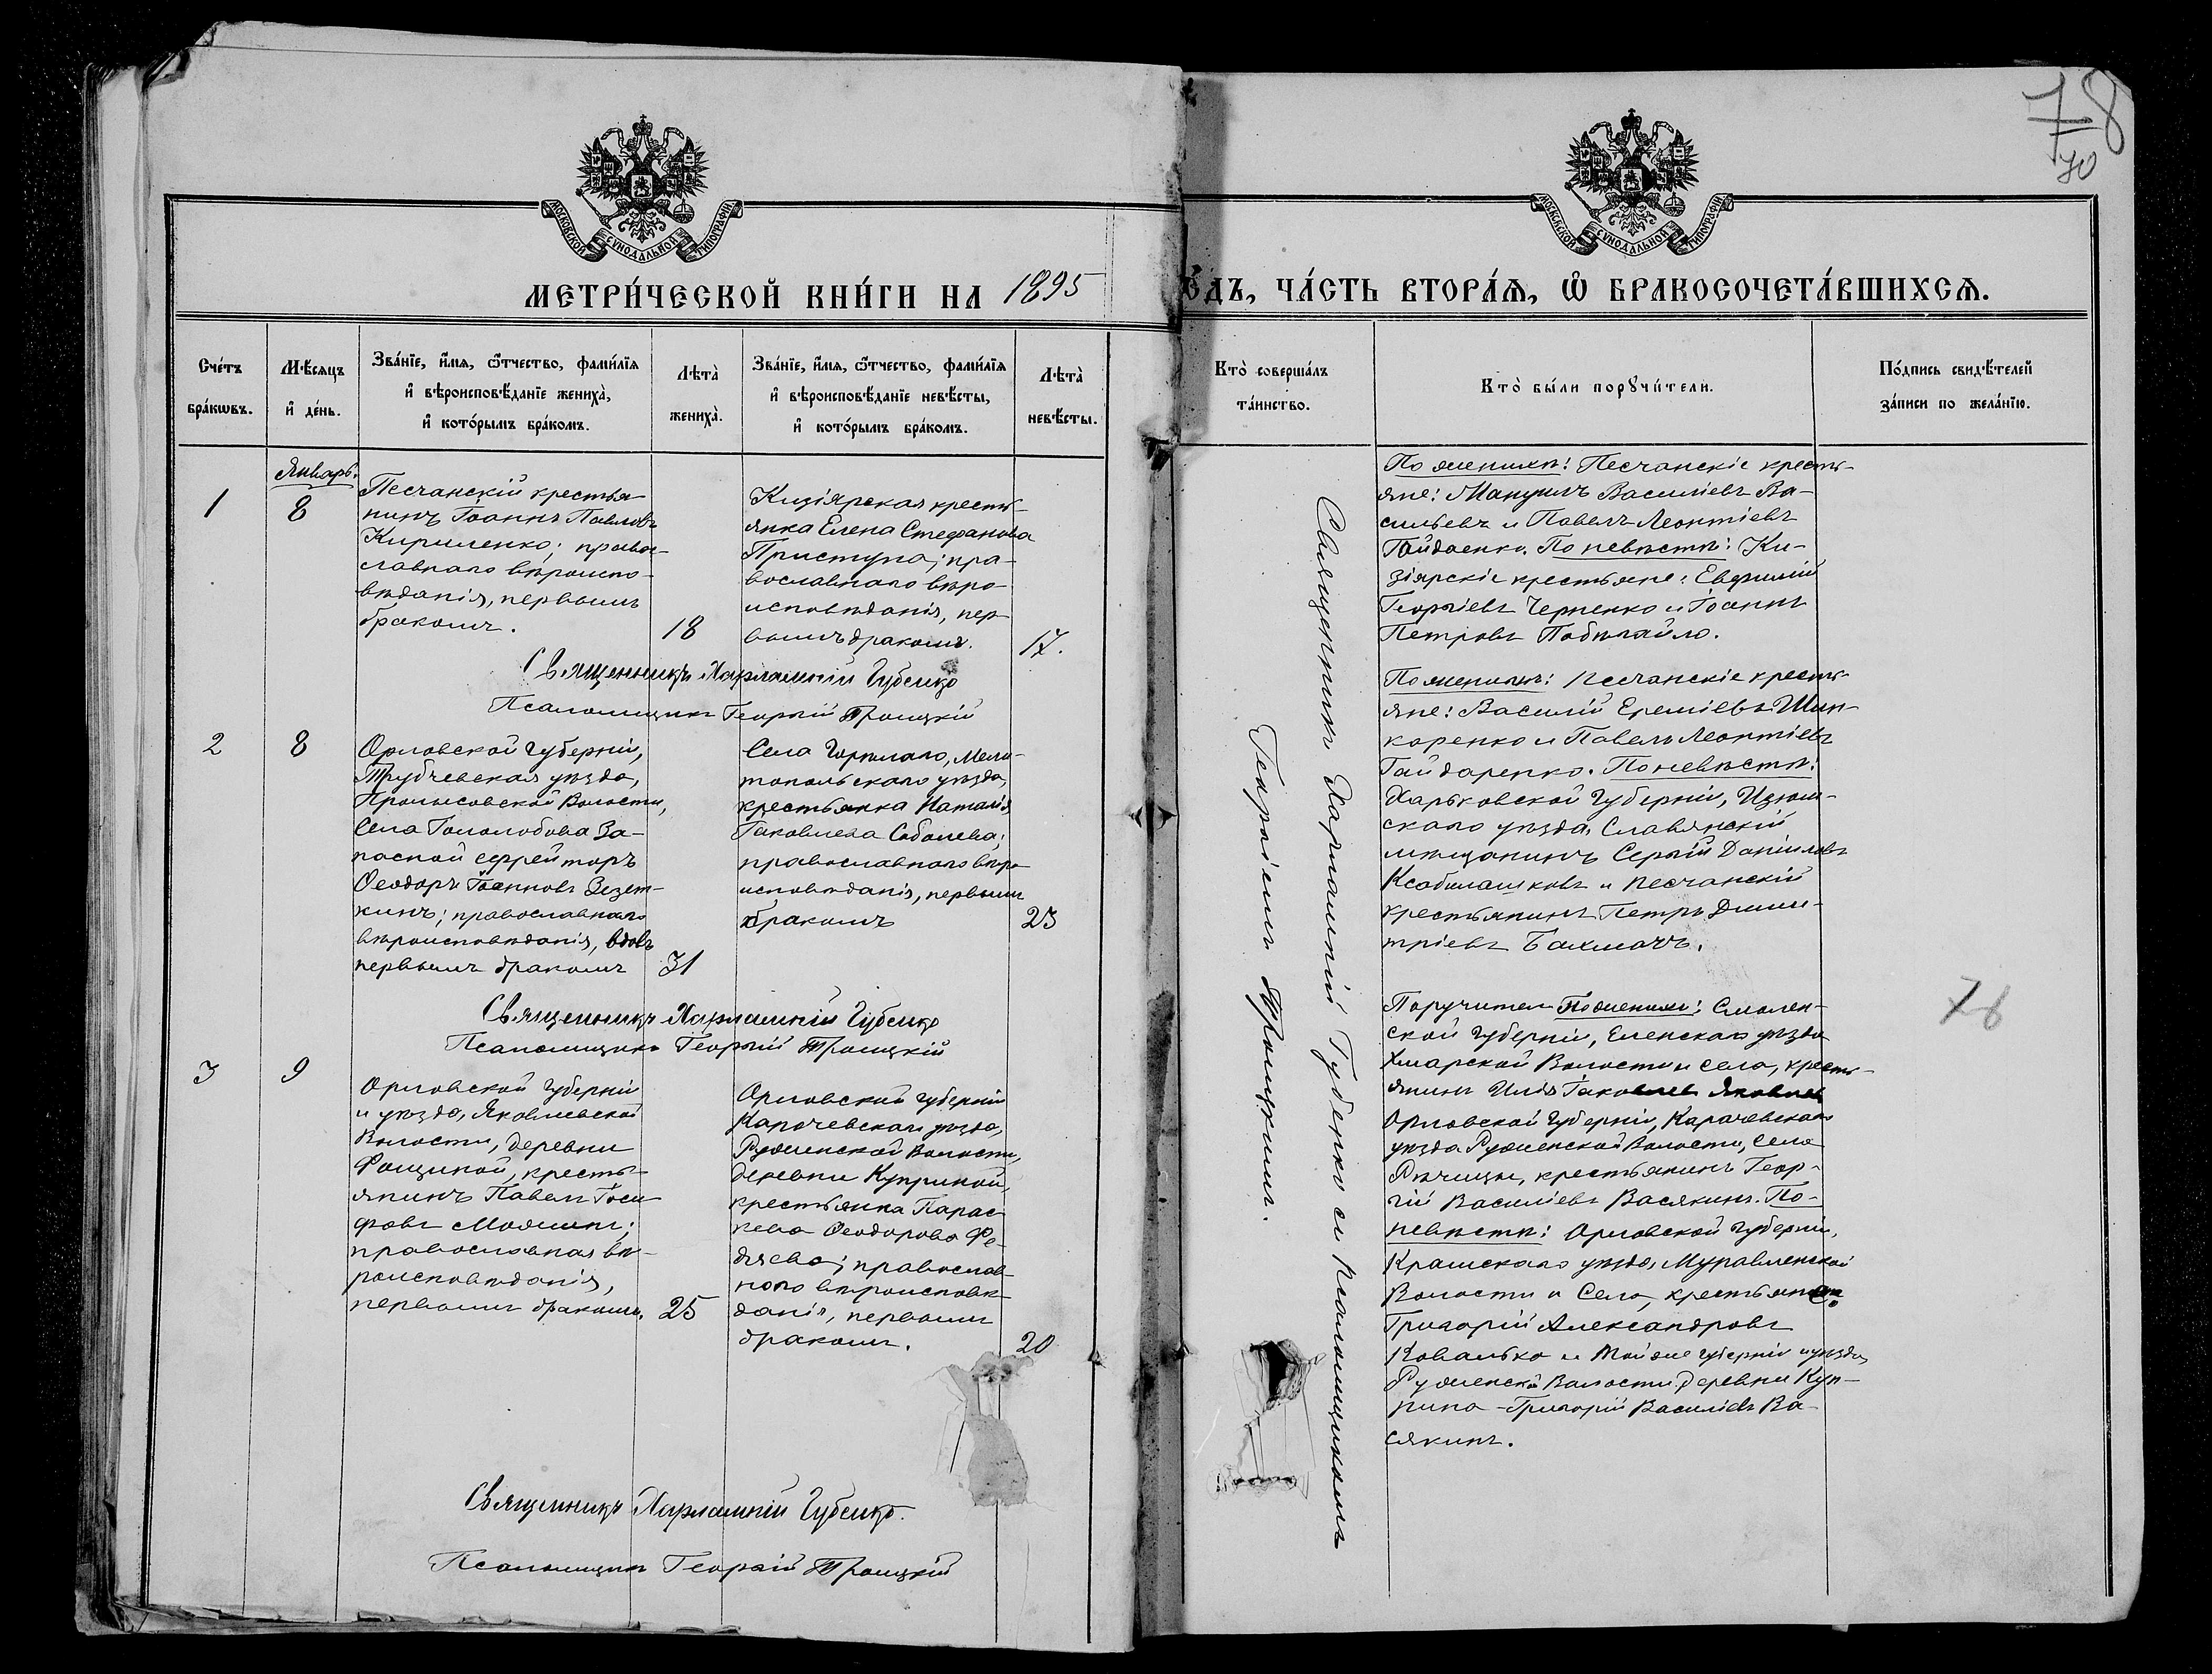 78
70
МОСКОВСКОЙ СѴНОДАЛЬНОЙ ТИПОГРАФІИ
МОСКОВСКОЙ СѴНОДАЛЬНОЙ ТИПОГРАФІИ
МЕТРИ́ЧЕСКОЙ КНИ́ГИ НА 1895
ЧА́СТЬ ВТОРА́Ѧ, Ѡ҆ БРАКОСОЧЕТА́ВШИХСѦ.
Сче́тъ
бра́кѡвъ.
Мѣ́сѧцъ
и҆ де́нь.
Зва́нїе, и҆́мѧ, ѻ҆́тчество, фамѝлїѧ
и҆ вѣроисповѣ́данїе жениха̀,
и҆ кото́рымъ бра́комъ.
Лѣта̀
жениха̀.
Зва́нїе, и҆́мѧ, ѻ҆́тчество, фамѝлїѧ
и҆ вѣроисповѣ́данїе невѣ́сты,
и҆ кото́рымъ бра́комъ.
Лѣта̀
невѣ́сты.
Кто̀ соверша́лъ
та́инство.
Кто̀ бы́ли порꙋчи́тели.
По́дпись свидѣ́телей
за́писи по жела́нїю.
Январь.
1
8
Песчанскій крестья-
нинъ Іоаннъ Павловъ
Кириленко; право-
славнаго вѣроиспо-
вѣданія, первымъ
бракомъ.
18
Кизіярская кресть-
янка Елена Стефанова
Приступа; пра-
вославнаго вѣро-
исповѣданія, пер-
вымъ бракомъ.
17.
По женихѣ: Песчанскіе кресть-
яне: Мануилъ Василіевъ Ва-
сильевъ и Павелъ Леонтіевъ
Гайдаенко. По невѣстѣ: Ки-
зіярскіе крестьяне: Евфимій
Георгіевъ Черненко и Іоаннъ
Петровъ Побигайло.
Священникъ Харлампій Губенко
Псаломщикъ Георгій Троицкій
2
8
Орловской Губерніи,
Трубчевскаго уѣзда,
Волости,
Села Гололобова За-
пасной ефрейторъ
Ѳеодоръ Іоанновъ Зезет-
кинъ; православнаго
вѣроисповѣданія, вдовъ
первымъ бракомъ
31
Села Горѣлаго, Мели-
топольскаго уѣзда,
крестьянка Наталія
Іаковлева Соболева;
православнаго вѣро-
исповѣданія, первымъ
бракомъ
23
По женихѣ: Песчанскіе кресть-
яне: Василій Ереміевъ Шин-
каренко и Павелъ Леонтіевъ
Гайдаренко. По невѣстѣ:
Харьковской Губерніи, Изюм-
скаго уѣзда, Славянскій
мѣщанинъ Сергій Даніиловъ
и Песчанскій
крестьянинъ Петръ Дими-
тріевъ Бахмачъ.
Священникъ Харлампій Губенко
Псаломщикъ Георгій Троицкій
3
9
Орловской Губерніи
и уѣзда, Яковлевской
Волости, деревни
Фощиной, кресть-
янинъ Павелъ Іоси-
фовъ
православнаго вѣ-
роисповѣданія,
первымъ бракомъ.
25
Орловской Губерніи
Карачевскаго уѣзда,
Руженской Волости,
деревни Куприной,
крестьянка Парас-
кева Ѳеодорова Фе-
дяева; православ-
наго вѣроисповѣ-
данія, первымъ
бракомъ.
20
Поручители По женихѣ: Смолен-
ской Губерніи, Еленскаго уѣзда
Хмарской Волости и села, кресть-
янинъ Илія Іаковлев
Орловской Губерніи, Карачевскаго
уѣзда Руженской Волости, Села
Рѣчицы, крестьянинъ Геор-
гій Василіевъ Васякинъ. По
невѣстѣ: Орловской Губерніи,
уѣзда,
Волости и Села, крестьянинъ
Григорій Александровъ
Ковалько и Той же Губерніи и уѣзда
Руженской Волости, деревни Куп-
рина - Григорій Василіевъ Ва-
сякинъ.
Священникъ Харлампій Губенко и псаломщикомъ
Георгіемъ Троицкимъ.
78
Священникъ Харлампій Губенко.
Псаломщикъ Георгій Троицкій